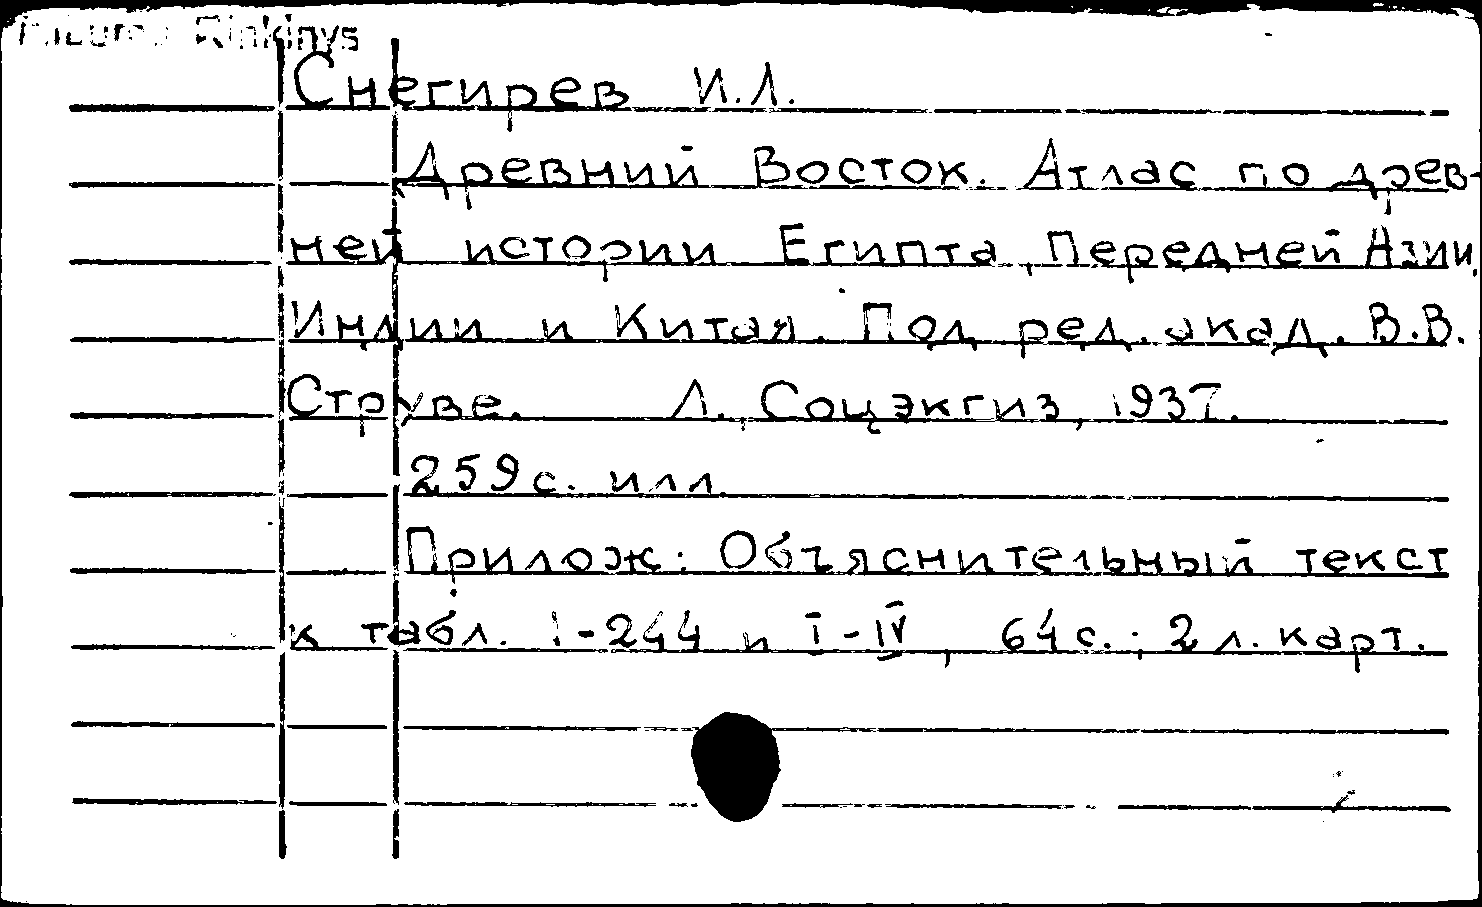 Rinkinys
Снегирев И.Л.
Древний Восток. Атлас по древ-
ней истории Египта, Передней Азии,
Индии и Китая. Под ред. акад. В.В.
Струве. Л., Соцэкгиз, 1937.
259 с. илл.
Прилож: Объяснительный текст
к табл. 1-244 и I-IV, 64 с.; 2 л. карт.